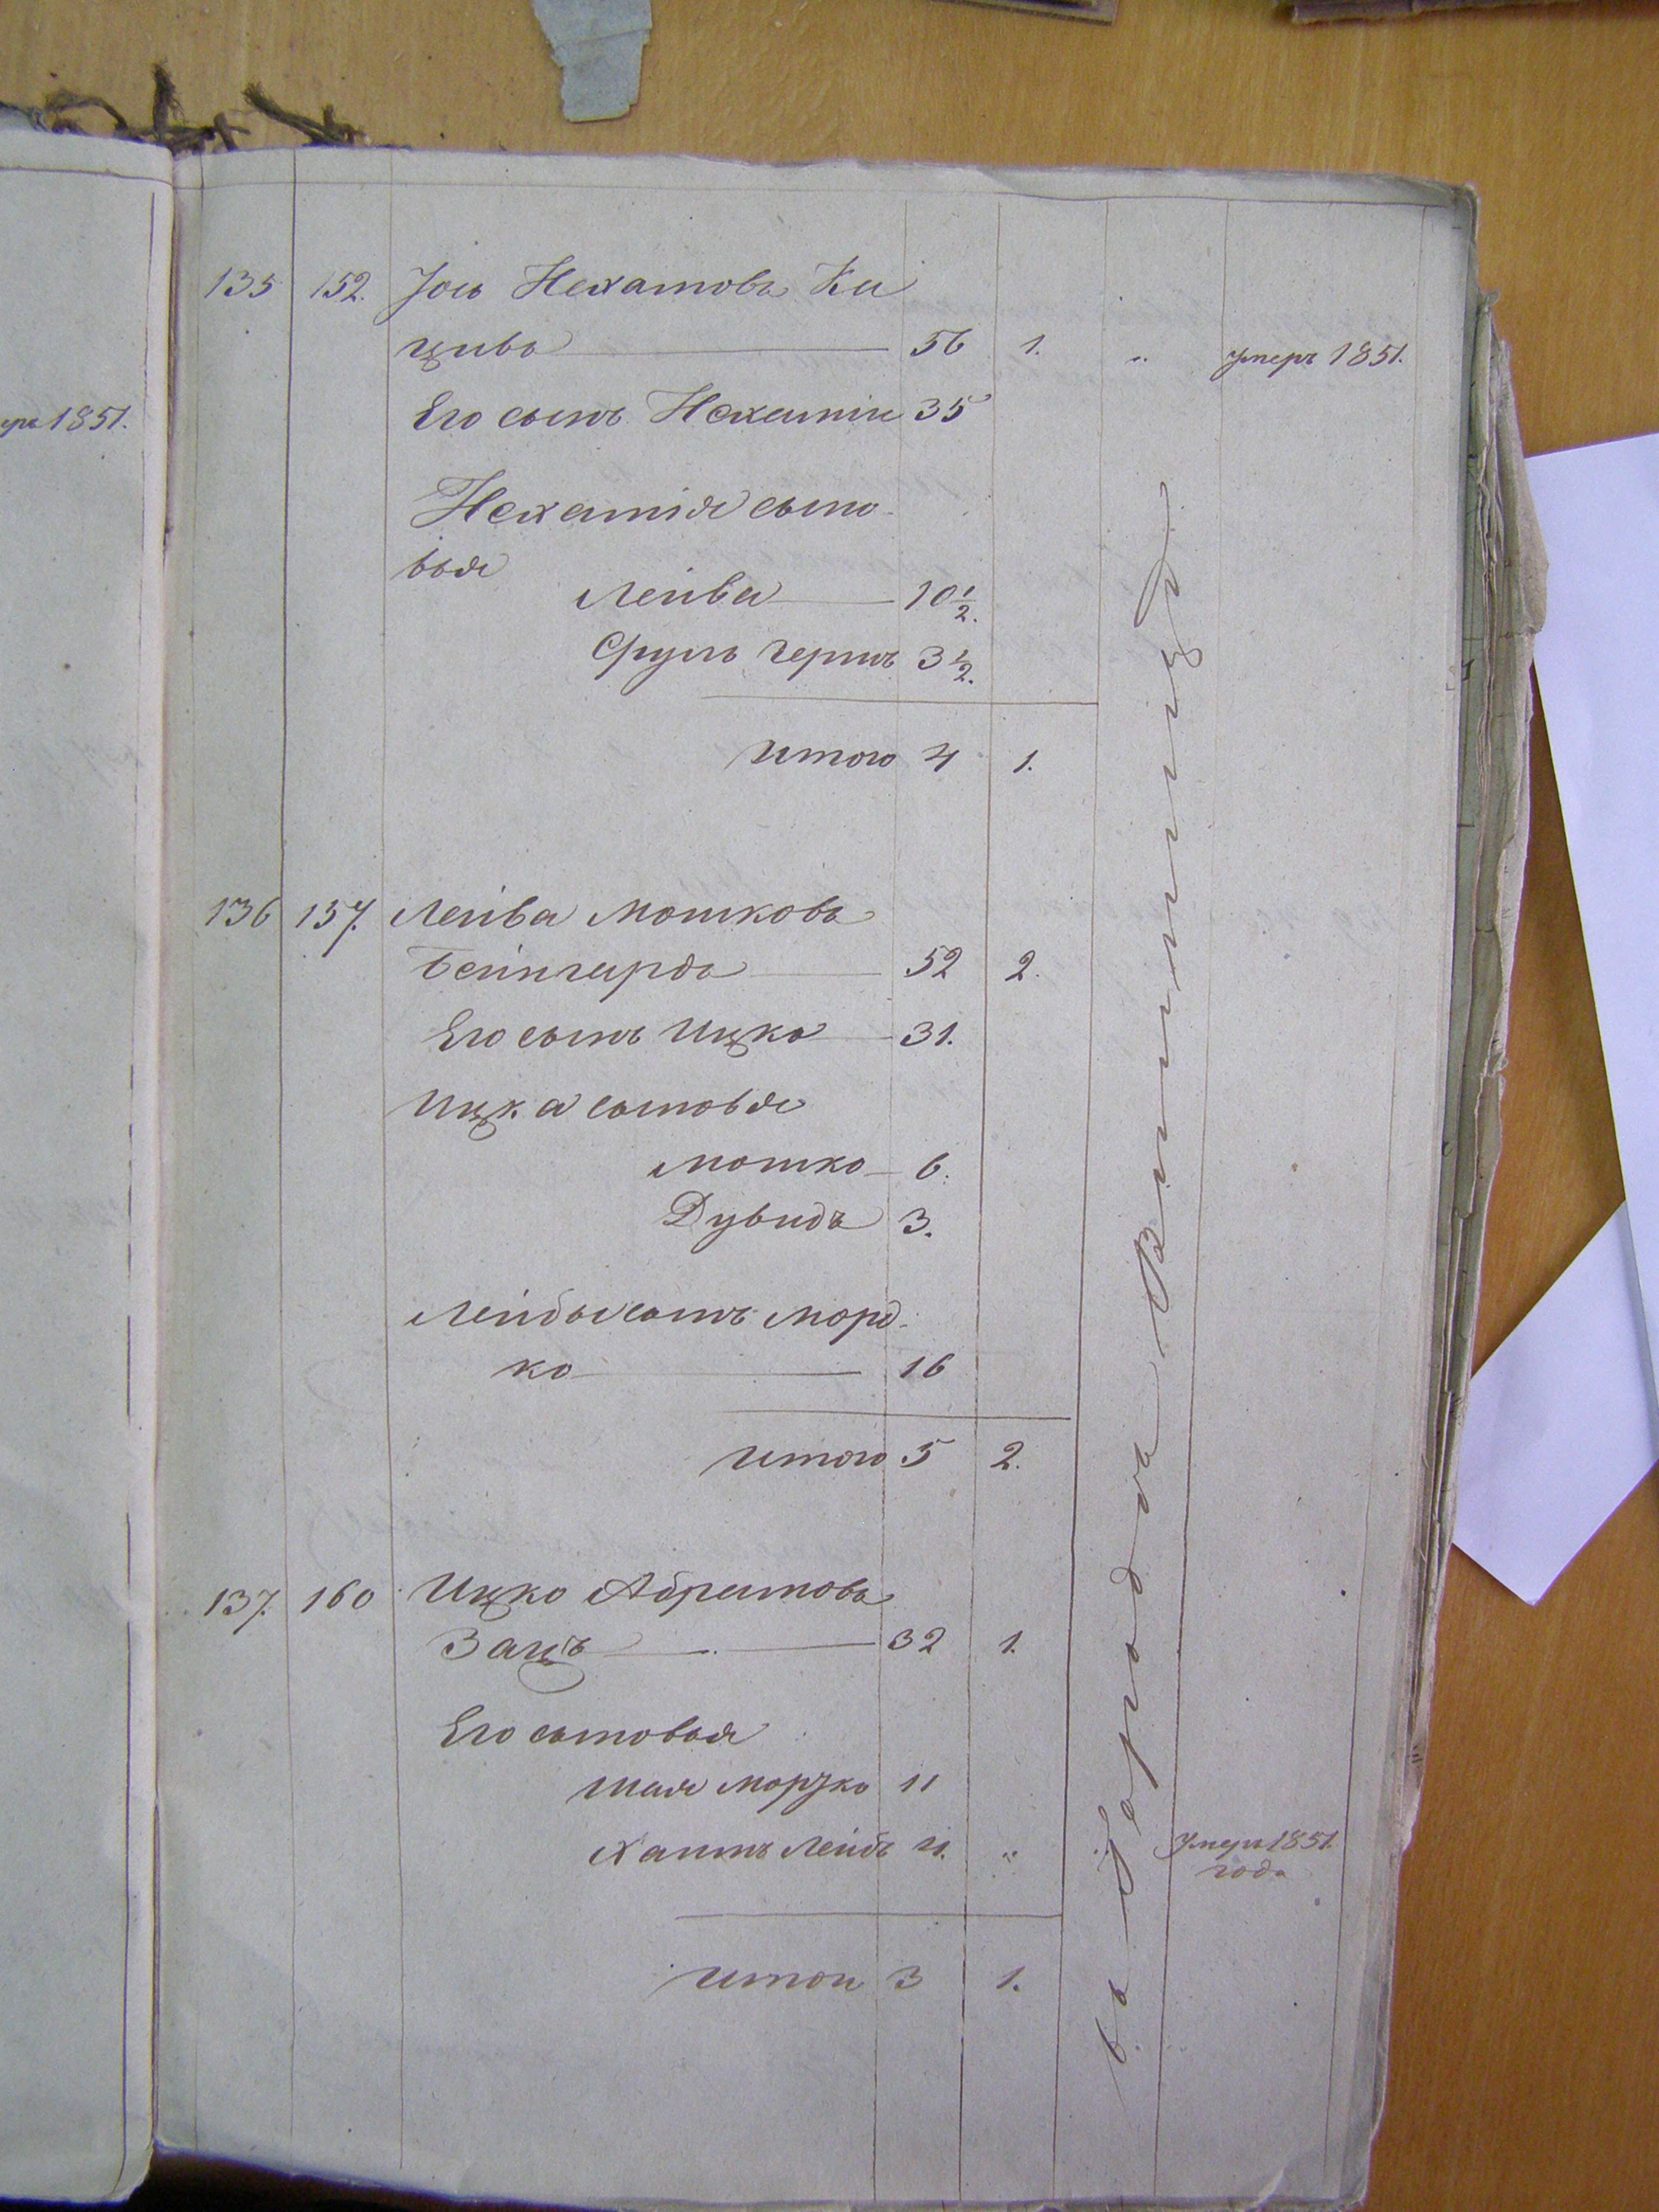 ръ 1851.
135 152. Іось Нехамовъ Ки
цивъ 56 1. „ умеръ 1851.
Его сынъ Нехамія 35
Нехамія сыно-
вья
Лейба 10 1/2.
Сруль Гершъ 3 1/2.
Итого 4 1.
136 157. Лейба Мошковъ
Бейнгардъ 52 2.
Его сынъ Ицко 31.
Ицка сыновья
Мошко 6.
Дувидъ 3.
Лейбы сынъ Морд-
ко 16
Итого 5 2.
137. 160 Ицко Абрамовъ
Зацъ 32 1.
Его сыновья
Шая Мордко 11
Хаимъ Лейбъ 4. „ „ умеръ 1851.
года
Итого 3 1.
въ городѣ Винницѣ